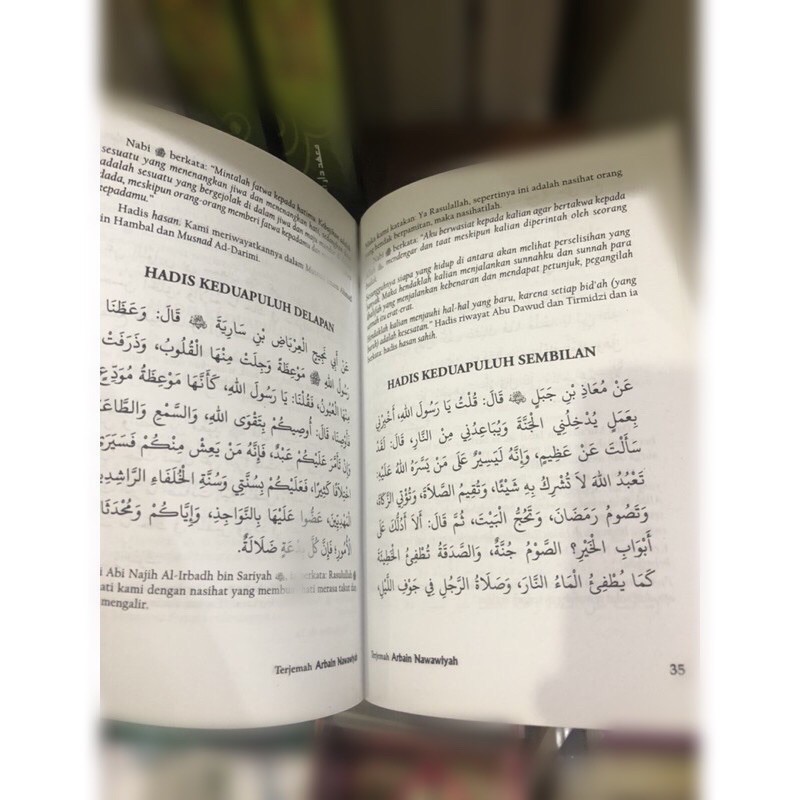 Nabi ﷺ berkata: "Mintalah fatwa kepada hatimu. Kebajikan adalah
sesuatu yang menenangkan jiwa dan menenangkan hati,
adalah sesuatu yang bergejolak di dalam jiwa dan maju
dada, meskipun orang-orang memberi fatwa kepadamu dan
kepadamu."
Hadis hasan. Kami meriwayatkannya dalam
in Hambal dan Musnad Ad-Darimi.
HADIS KEDUAPULUH DELAPAN
عَنْ أَبِي نَجِيحٍ الْعِرْبَاضِ بْنِ سَارِيَةَ ﷺ قَالَ: وَعَظَنَا
رَسُولُ اللهِ ﷺ مَوْعِظَةً وَجِلَتْ مِنْهَا الْقُلُوبُ، وَذَرَفَتْ
مِنْهَا الْعُيُونُ، فَقُلْنَا: يَا رَسُولَ اللهِ، كَأَنَّهَا مَوْعِظَةُ مُوَدِّعٍ
فَأَوْصِنَا، قَالَ: أُوصِيكُمْ بِتَقْوَى اللهِ، وَالسَّمْعِ وَالطَّاعَةِ
وَإِنْ تَأَمَّرَ عَلَيْكُمْ عَبْدٌ، فَإِنَّهُ مَنْ يَعِشْ مِنْكُمْ فَسَيَرَى
اخْتِلَافًا كَثِيرًا، فَعَلَيْكُمْ بِسُنَّتِي وَسُنَّةِ الْخُلَفَاءِ الرَّاشِدِينَ
الْمَهْدِيِّينَ، عَضُّوا عَلَيْهَا بِالنَّوَاجِذِ، وَإِيَّاكُمْ وَمُحْدَثَاتِ
الْأُمُورِ؛ فَإِنَّ كُلَّ بِدْعَةٍ ضَلَالَةٌ.
i Abi Najih Al-Irbadh bin Sariyah berkata: Rasulullah ﷺ
ati kami dengan nasihat yang membuat hati merasa takut dan
mengalir.
Terjemah Arbain Nawawiyah
kami katakan: Ya Rasulallah, sepertinya ini adalah nasihat orang
yang hendak berpamitan, maka nasihatilah.
Nabi ﷺ berkata: "Aku berwasiat kepada kalian agar bertakwa kepada
mendengar dan taat meskipun kalian diperintah oleh seorang
Sesungguhnya siapa yang hidup di antara akan melihat perselisihan yang
Maka hendaklah kalian menjalankan sunnahku dan sunnah para
khalifah yang menjalankan kebenaran dan mendapat petunjuk, peganglah
itu erat-erat.
Hendaklah kalian menjauhi hal-hal yang baru, karena setiap bid'ah (yang
adalah kesesatan." Hadis riwayat Abu Dawud dan Tirmidzi dan ia
berkata: hadis hasan sahih.
HADIS KEDUAPULUH SEMBILAN
عَنْ مُعَاذِ بْنِ جَبَلٍ ﷺ قَالَ: قُلْتُ يَا رَسُولَ اللهِ، أَخْبِرْنِي
بِعَمَلٍ يُدْخِلُنِي الْجَنَّةَ وَيُبَاعِدُنِي مِنَ النَّارِ، قَالَ: لَقَدْ
سَأَلْتَ عَنْ عَظِيمٍ، وَإِنَّهُ لَيَسِيرٌ عَلَى مَنْ يَسَّرَهُ اللهُ عَلَيْهِ:
تَعْبُدُ اللهَ لَا تُشْرِكُ بِهِ شَيْئًا، وَتُقِيمُ الصَّلَاةَ، وَتُؤْتِي الزَّكَاةَ،
وَتَصُومُ رَمَضَانَ، وَتَحُجُّ الْبَيْتَ، ثُمَّ قَالَ: أَلَا أَدُلُّكَ عَلَى
أَبْوَابِ الْخَيْرِ؟ الصَّوْمُ جُنَّةٌ، وَالصَّدَقَةُ تُطْفِئُ الْخَطِيئَةَ
كَمَا يُطْفِئُ الْمَاءُ النَّارَ، وَصَلَاةُ الرَّجُلِ فِي جَوْفِ اللَّيْلِ،
Terjemah Arbain Nawawiyah
35